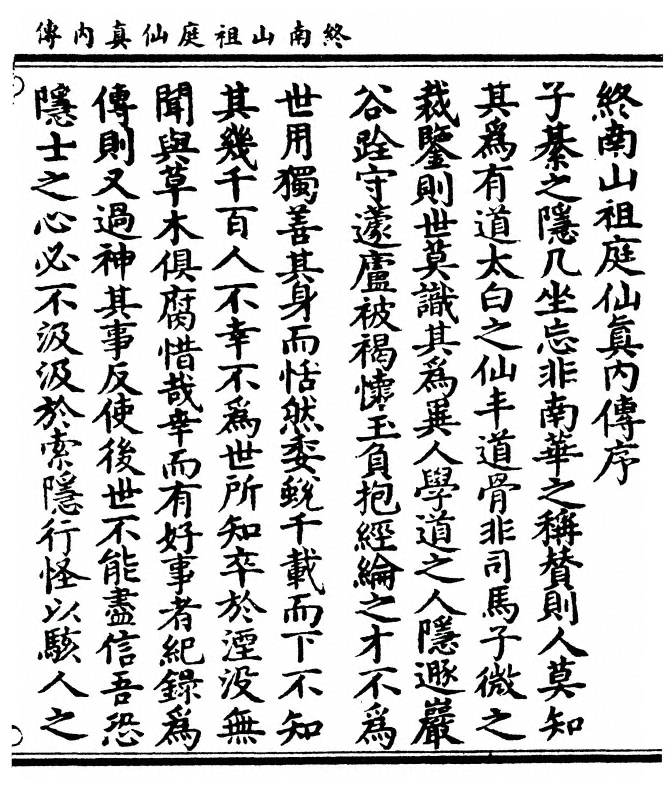 終南山祖庭仙真內傳
終南山祖庭仙真內傳序
子綦之隱几坐忘非南華之稱賛則人莫知
其爲有道太白之仙丰道骨非司馬子微之
裁鑒則世莫識其爲異人學道之人隱遯巖
谷跧守蘧廬被褐懷玉負抱經綸之才不爲
世用獨善其身而恬然委蛻千載而下不知
其幾千百人不幸不爲世所知卒於湮没無
聞與草木俱腐惜哉幸而有好事者紀錄爲
傳則又過神其事反使後世不能盡信吾恐
隱士之心必不汲汲於索隱行怪以駭人之